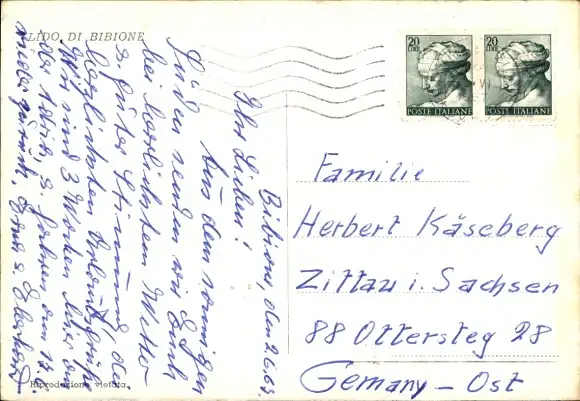 LIDO DI BIBIONE
Bibione, den 2.6.63.
Ihr Lieben!
Aus dem sonnigen
Süden senden wir Euch
bei herrlichstem Wetter
u. guter Stimmung die
herzlichsten Urlaubsgrüße
Wir sind 3 Wochen hier an
der Adria, u. fahren am
wieder zurück. Erna u. Eberhard
Riproduzione vietata
20 LIRE
POSTE ITALIANE
20 LIRE
POSTE ITALIANE
Familie
Herbert Käseberg
Zittau i. Sachsen
88 Ottersteg 28
Gemany - Ost